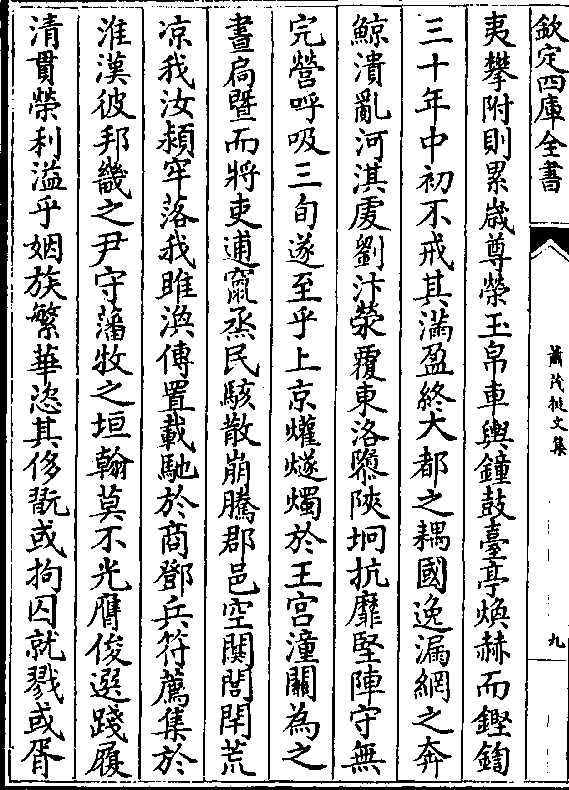 欽定四庫全書
蕭茂挺文集
九
夷攀附則累歲尊榮玉帛車輿鐘鼓臺亭煥赫而鏗鍧
三十年中初不戒其滿盈終大都之耦國逸漏網之奔
鯨潰亂河淇虔劉汴滎覆東洛隳陜坰抗靡堅陣守無
完營呼吸三旬遂至乎上京爟燧燭於王宫潼關為之
晝扄暨而將吏逋竄烝民駭散崩騰郡邑空闃閭閈荒
凉我汝潁牢落我睢渙傳置載馳於商鄧兵符薦集於
淮漢彼邦畿之尹守藩牧之垣翰莫不光膺俊選踐履
清貫榮利溢乎姻族繁華恣其侈翫或拘囚就戮或胥